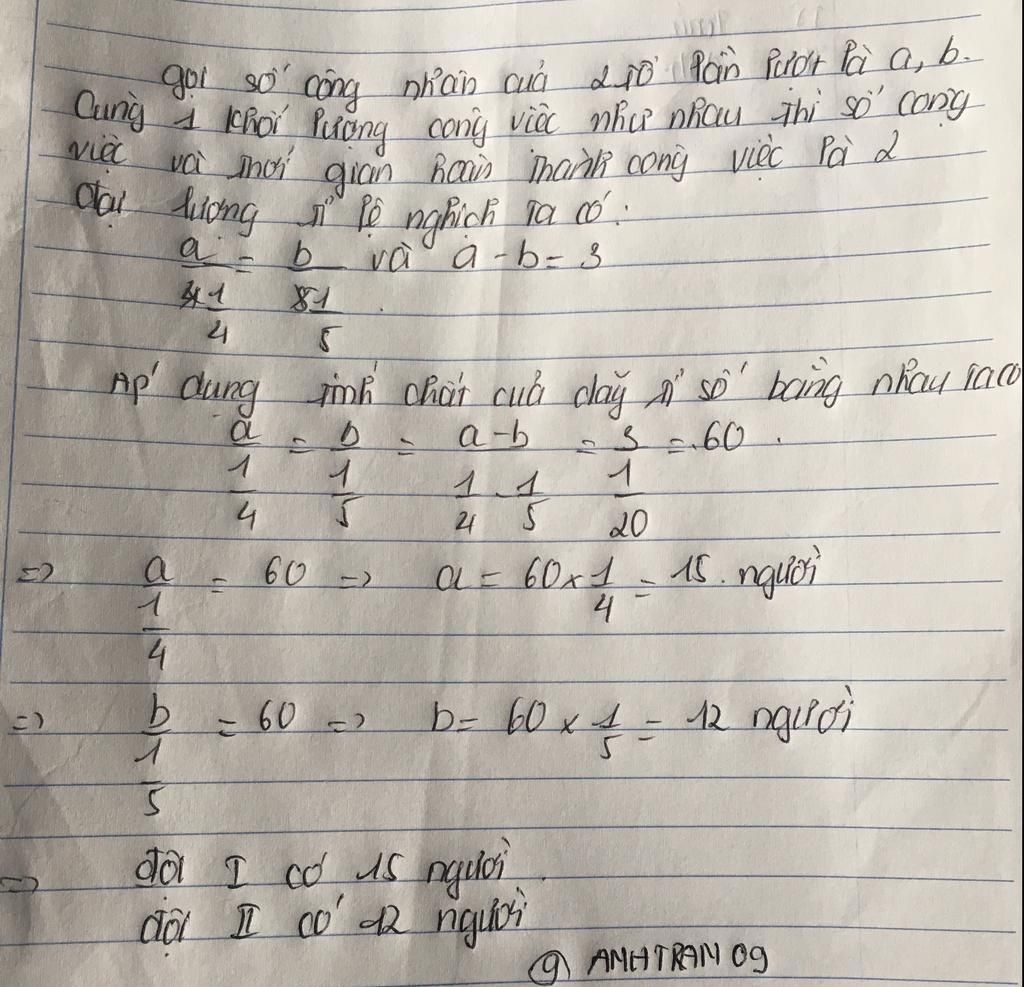 gọi số công nhân của 2 tổ lần lượt là a, b.
Cùng 1 khối lượng công việc như nhau thì số công
việc và thời gian hoàn thành công việc là 2
đại lượng tỉ lệ nghịch ta có:
a/(1/4) = b/(1/5) và a - b = 3
Áp dụng tính chất của dãy tỉ số bằng nhau ta có
a/(1/4) = b/(1/5) = (a-b)/(1/4 - 1/5) = 3/(1/20) = 60.
=> a/(1/4) = 60 => a = 60 × 1/4 = 15 người
=> b/(1/5) = 60 => b = 60 × 1/5 = 12 người
=> đội I có 15 người.
đội II có 12 người
@ ANHTRAN09